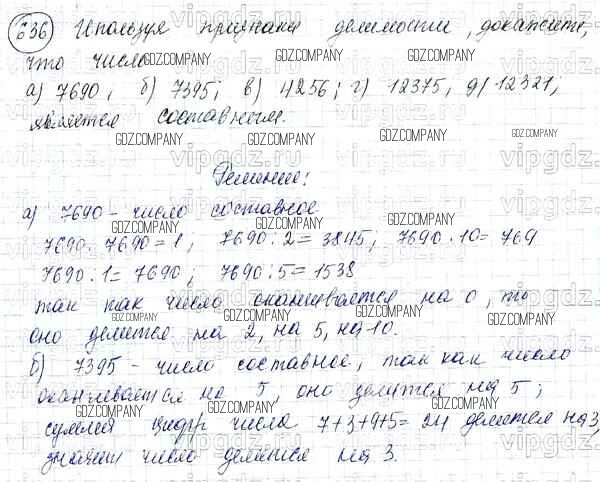 636 Используя признаки делимости, докажите,
что число
а) 7690, б) 7395; в) 4256; г) 12375, д) 12321;
является составным.
Решение:
а) 7690 - число составное
7690 : 7690 = 1; 7690 : 2 = 3845; 7690 : 10 = 769
7690 : 1 = 7690; 7690 : 5 = 1538
так как число оканчивается на 0, то
оно делится на 2, на 5, на 10.
б) 7395 - число составное, так как число
оканчивается на 5, оно делится на 5;
сумма цифр числа 7+3+9+5 = 24 делится на 3,
значит число делится на 3.